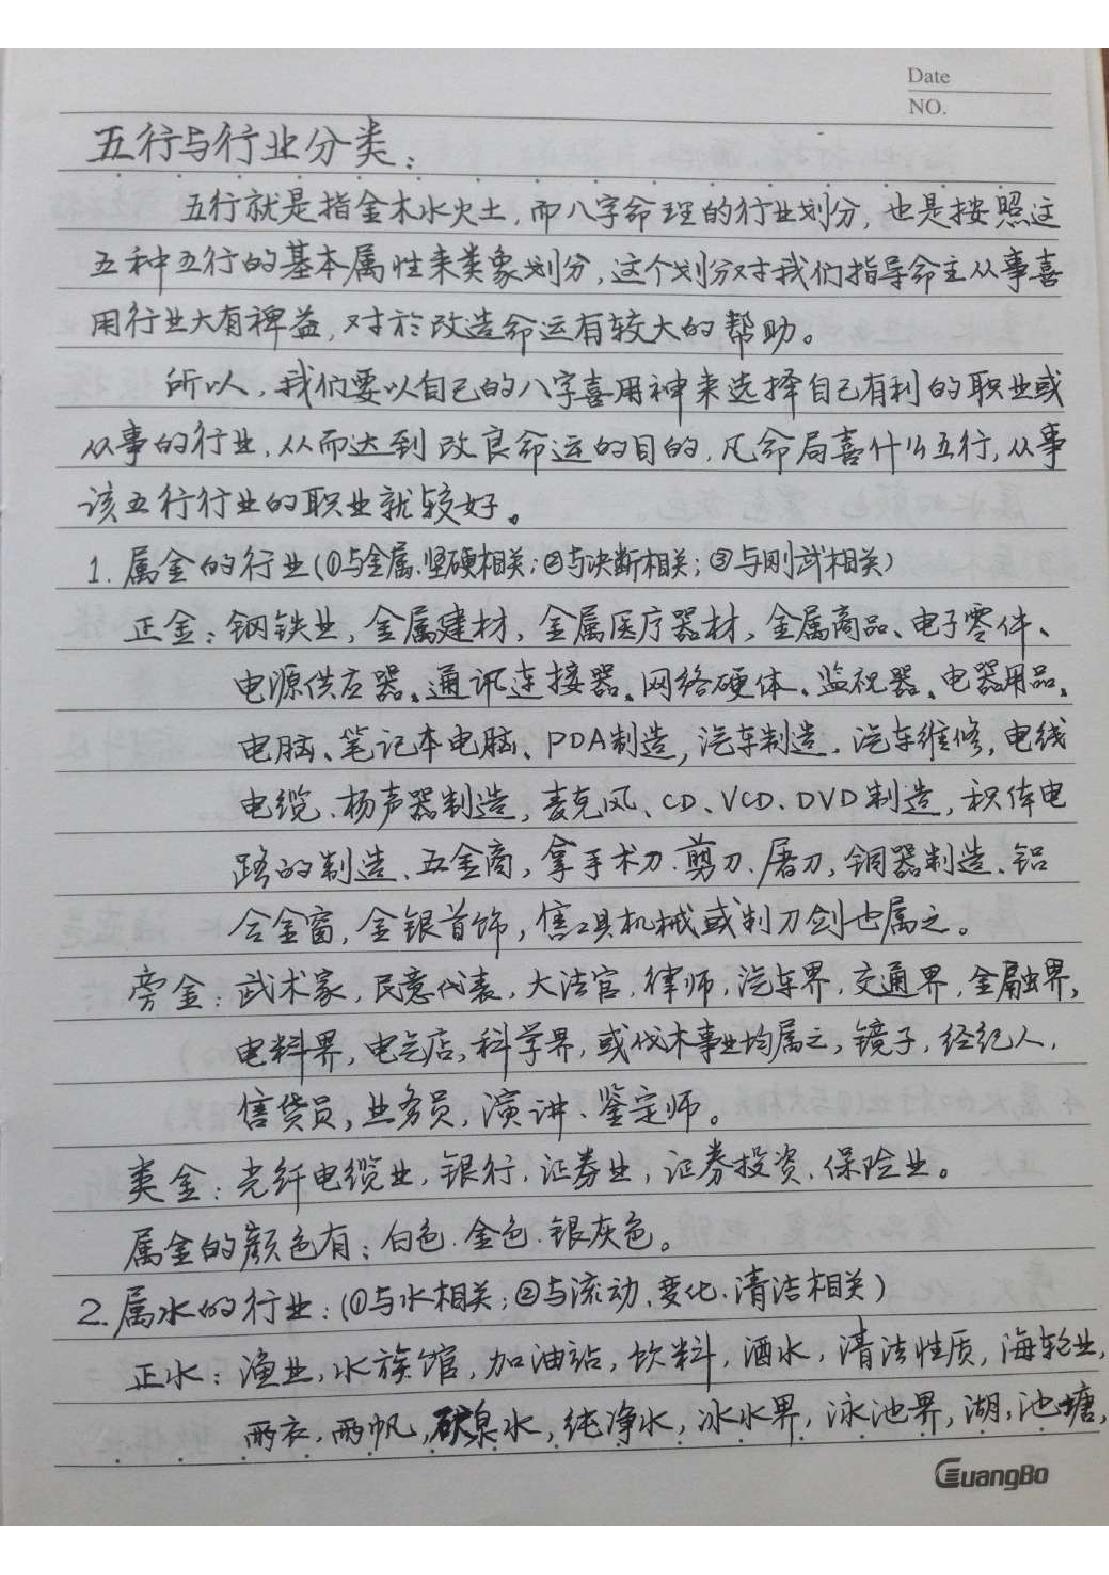 Date
NO.
五行与行业分类：
五行就是指金木水火土，而八字命理的行业划分，也是按照这
五种五行的基本属性来类象划分，这个划分对我们指导命主从事喜
用行业大有裨益，对於改造命运有较大的帮助。
所以，我们要以自己的八字喜用神来选择自己有利的职业或
从事的行业，从而达到改良命运的目的，凡命局喜什么五行，从事
该五行行业的职业就较好。
1. 属金的行业（①与金属、坚硬相关；②与决断相关；③与刚武相关）
正金：钢铁业，金属建材，金属医疗器材，金属商品、电子零件、
电源供应器、通讯连接器、网络硬体、监视器、电器用品、
电脑、笔记本电脑、PDA制造，汽车制造、汽车维修，电线
电缆、杨声器制造，麦克风、CD、VCD、DVD制造，积体电
路的制造、五金商，拿手术刀、剪刀、屠刀，铜器制造、铝
合金窗，金银首饰，售工具机械或制刀剑也属之。
旁金：武术家，民意代表，大法官，律师，汽车界，交通界，金融界，
电料界，电气店，科学界，或伐木事业均属之，镜子，经纪人，
售货员，业务员，演讲、鉴定师。
类金：光纤电缆业，银行，证券业，证券投资，保险业。
属金的颜色有：白色、金色、银灰色。
2. 属水的行业：（①与水相关；②与流动、变化、清洁相关）
正水：渔业，水族馆，加油站，饮料，酒水，清洁性质，海轮业，
雨衣，雨帆，矿泉水，纯净水，冰水界，泳池界，湖，池塘，
GuangBo